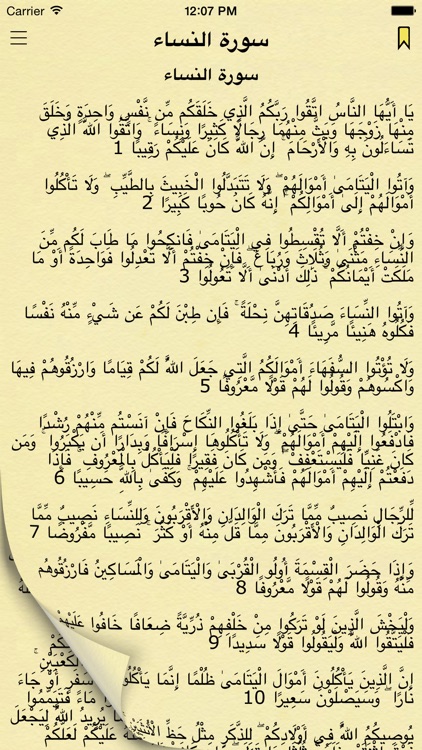 Carrier 12:07 PM
سورة النساء
سورة النساء
يَا أَيُّهَا النَّاسُ اتَّقُوا رَبَّكُمُ الَّذِي خَلَقَكُم مِّن نَّفْسٍ وَاحِدَةٍ وَخَلَقَ
مِنْهَا زَوْجَهَا وَبَثَّ مِنْهُمَا رِجَالًا كَثِيرًا وَنِسَاءً ۚ وَاتَّقُوا اللَّهَ الَّذِي
تَسَاءَلُونَ بِهِ وَالْأَرْحَامَ ۚ إِنَّ اللَّهَ كَانَ عَلَيْكُمْ رَقِيبًا 1
وَآتُوا الْيَتَامَىٰ أَمْوَالَهُمْ ۖ وَلَا تَتَبَدَّلُوا الْخَبِيثَ بِالطَّيِّبِ ۖ وَلَا تَأْكُلُوا
أَمْوَالَهُمْ إِلَىٰ أَمْوَالِكُمْ ۚ إِنَّهُ كَانَ حُوبًا كَبِيرًا 2
وَإِنْ خِفْتُمْ أَلَّا تُقْسِطُوا فِي الْيَتَامَىٰ فَانكِحُوا مَا طَابَ لَكُم مِّنَ
النِّسَاءِ مَثْنَىٰ وَثُلَاثَ وَرُبَاعَ ۖ فَإِنْ خِفْتُمْ أَلَّا تَعْدِلُوا فَوَاحِدَةً أَوْ مَا
مَلَكَتْ أَيْمَانُكُمْ ۚ ذَٰلِكَ أَدْنَىٰ أَلَّا تَعُولُوا 3
وَآتُوا النِّسَاءَ صَدُقَاتِهِنَّ نِحْلَةً ۚ فَإِن طِبْنَ لَكُمْ عَن شَيْءٍ مِّنْهُ نَفْسًا
فَكُلُوهُ هَنِيئًا مَّرِيئًا 4
وَلَا تُؤْتُوا السُّفَهَاءَ أَمْوَالَكُمُ الَّتِي جَعَلَ اللَّهُ لَكُمْ قِيَامًا وَارْزُقُوهُمْ فِيهَا
وَاكْسُوهُمْ وَقُولُوا لَهُمْ قَوْلًا مَّعْرُوفًا 5
وَابْتَلُوا الْيَتَامَىٰ حَتَّىٰ إِذَا بَلَغُوا النِّكَاحَ فَإِنْ آنَسْتُم مِّنْهُمْ رُشْدًا
فَادْفَعُوا إِلَيْهِمْ أَمْوَالَهُمْ ۖ وَلَا تَأْكُلُوهَا إِسْرَافًا وَبِدَارًا أَن يَكْبَرُوا ۚ وَمَن
كَانَ غَنِيًّا فَلْيَسْتَعْفِفْ ۖ وَمَن كَانَ فَقِيرًا فَلْيَأْكُلْ بِالْمَعْرُوفِ ۚ فَإِذَا
دَفَعْتُمْ إِلَيْهِمْ أَمْوَالَهُمْ فَأَشْهِدُوا عَلَيْهِمْ ۚ وَكَفَىٰ بِاللَّهِ حَسِيبًا 6
لِّلرِّجَالِ نَصِيبٌ مِّمَّا تَرَكَ الْوَالِدَانِ وَالْأَقْرَبُونَ وَلِلنِّسَاءِ نَصِيبٌ مِّمَّا
تَرَكَ الْوَالِدَانِ وَالْأَقْرَبُونَ مِمَّا قَلَّ مِنْهُ أَوْ كَثُرَ ۚ نَصِيبًا مَّفْرُوضًا 7
وَإِذَا حَضَرَ الْقِسْمَةَ أُولُو الْقُرْبَىٰ وَالْيَتَامَىٰ وَالْمَسَاكِينُ فَارْزُقُوهُم
مِّنْهُ وَقُولُوا لَهُمْ قَوْلًا مَّعْرُوفًا 8
وَلْيَخْشَ الَّذِينَ لَوْ تَرَكُوا مِنْ خَلْفِهِمْ ذُرِّيَّةً ضِعَافًا خَافُوا عَلَيْهِمْ
فَلْيَتَّقُوا اللَّهَ وَلْيَقُولُوا قَوْلًا سَدِيدًا 9
إِنَّ الَّذِينَ يَأْكُلُونَ أَمْوَالَ الْيَتَامَىٰ ظُلْمًا إِنَّمَا يَأْكُلُونَ
نَارًا ۖ وَسَيَصْلَوْنَ سَعِيرًا 10
يُوصِيكُمُ اللَّهُ فِي أَوْلَادِكُمْ ۖ لِلذَّكَرِ مِثْلُ حَظِّ